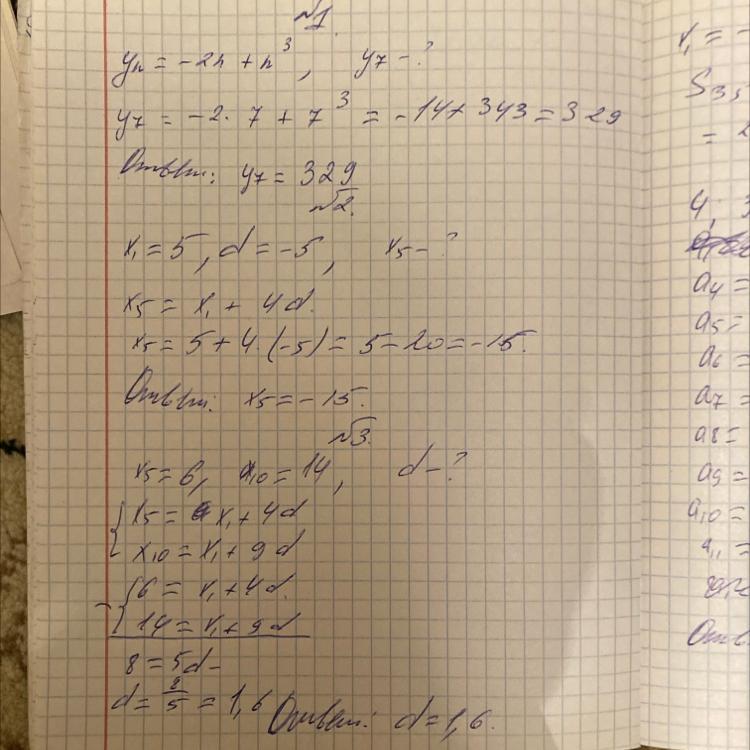 №1.
yn = -2n + n³, y7 - ?
y7 = -2·7 + 7³ = -14 + 343 = 329
Ответ: y7 = 329
№2.
x1 = 5, d = -5, x5 - ?
x5 = x1 + 4d.
x5 = 5 + 4·(-5) = 5 - 20 = -15.
Ответ: x5 = -15.
№3.
x5 = 6, x10 = 14, d - ?
{ x5 = x1 + 4d
x10 = x1 + 9d
- { 6 = x1 + 4d.
14 = x1 + 9d
8 = 5d
d = 8/5 = 1,6 Ответ: d = 1,6.
x1 = -
S35
= 2
4; 3
a4 =
a5 =
a6 =
a7 =
a8 =
a9 =
a10 =
a11 =
Отв